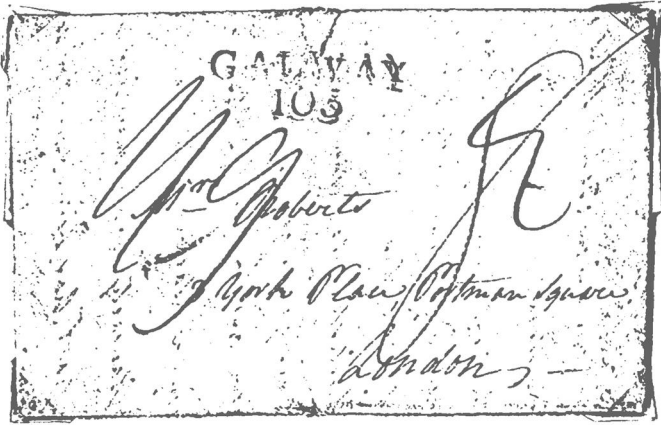 GALWAY
103
Mrs Roberts
York Place Portman Square
London